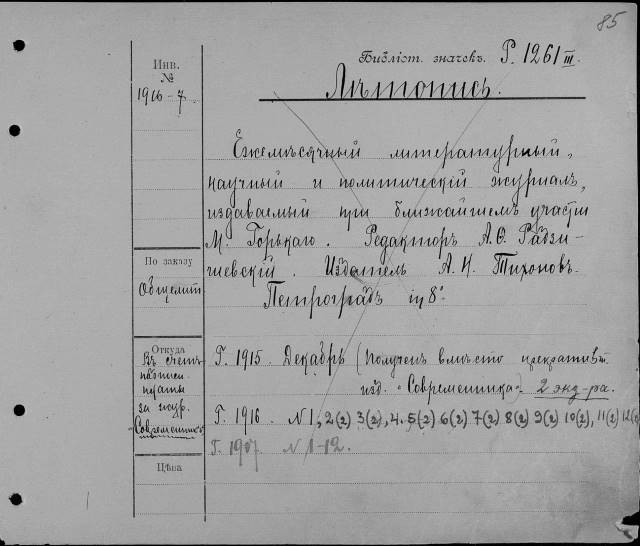 85
Библіот. значекъ. Р. 1261 III.
Инв.
№
1916-7
Лѣтопись.
Ежемѣсячный литературный,
научный и политическій журналъ,
издаваемый при ближайшемъ участіи
М. Горькаго. Редакторъ А. Ѳ. Радзи-
шевскій. Издатель А. Н. Тихоновъ.
Петроградъ in 8°
По заказу
Общелит
Откуда
Въ счетъ
подписн
платы
за жур.
"Современникъ"
Цѣна
Г. 1915. Декабрь (Получен вмѣсто прекратив.
изд. "Современника") 2 экз-ра.
Г. 1916 N 1, 2(2) 3(2), 4. 5(2) 6(2) 7(2) 8(2) 9(2) 10(2), 11(2) 12(2)
Г. 1917. N 1-12.